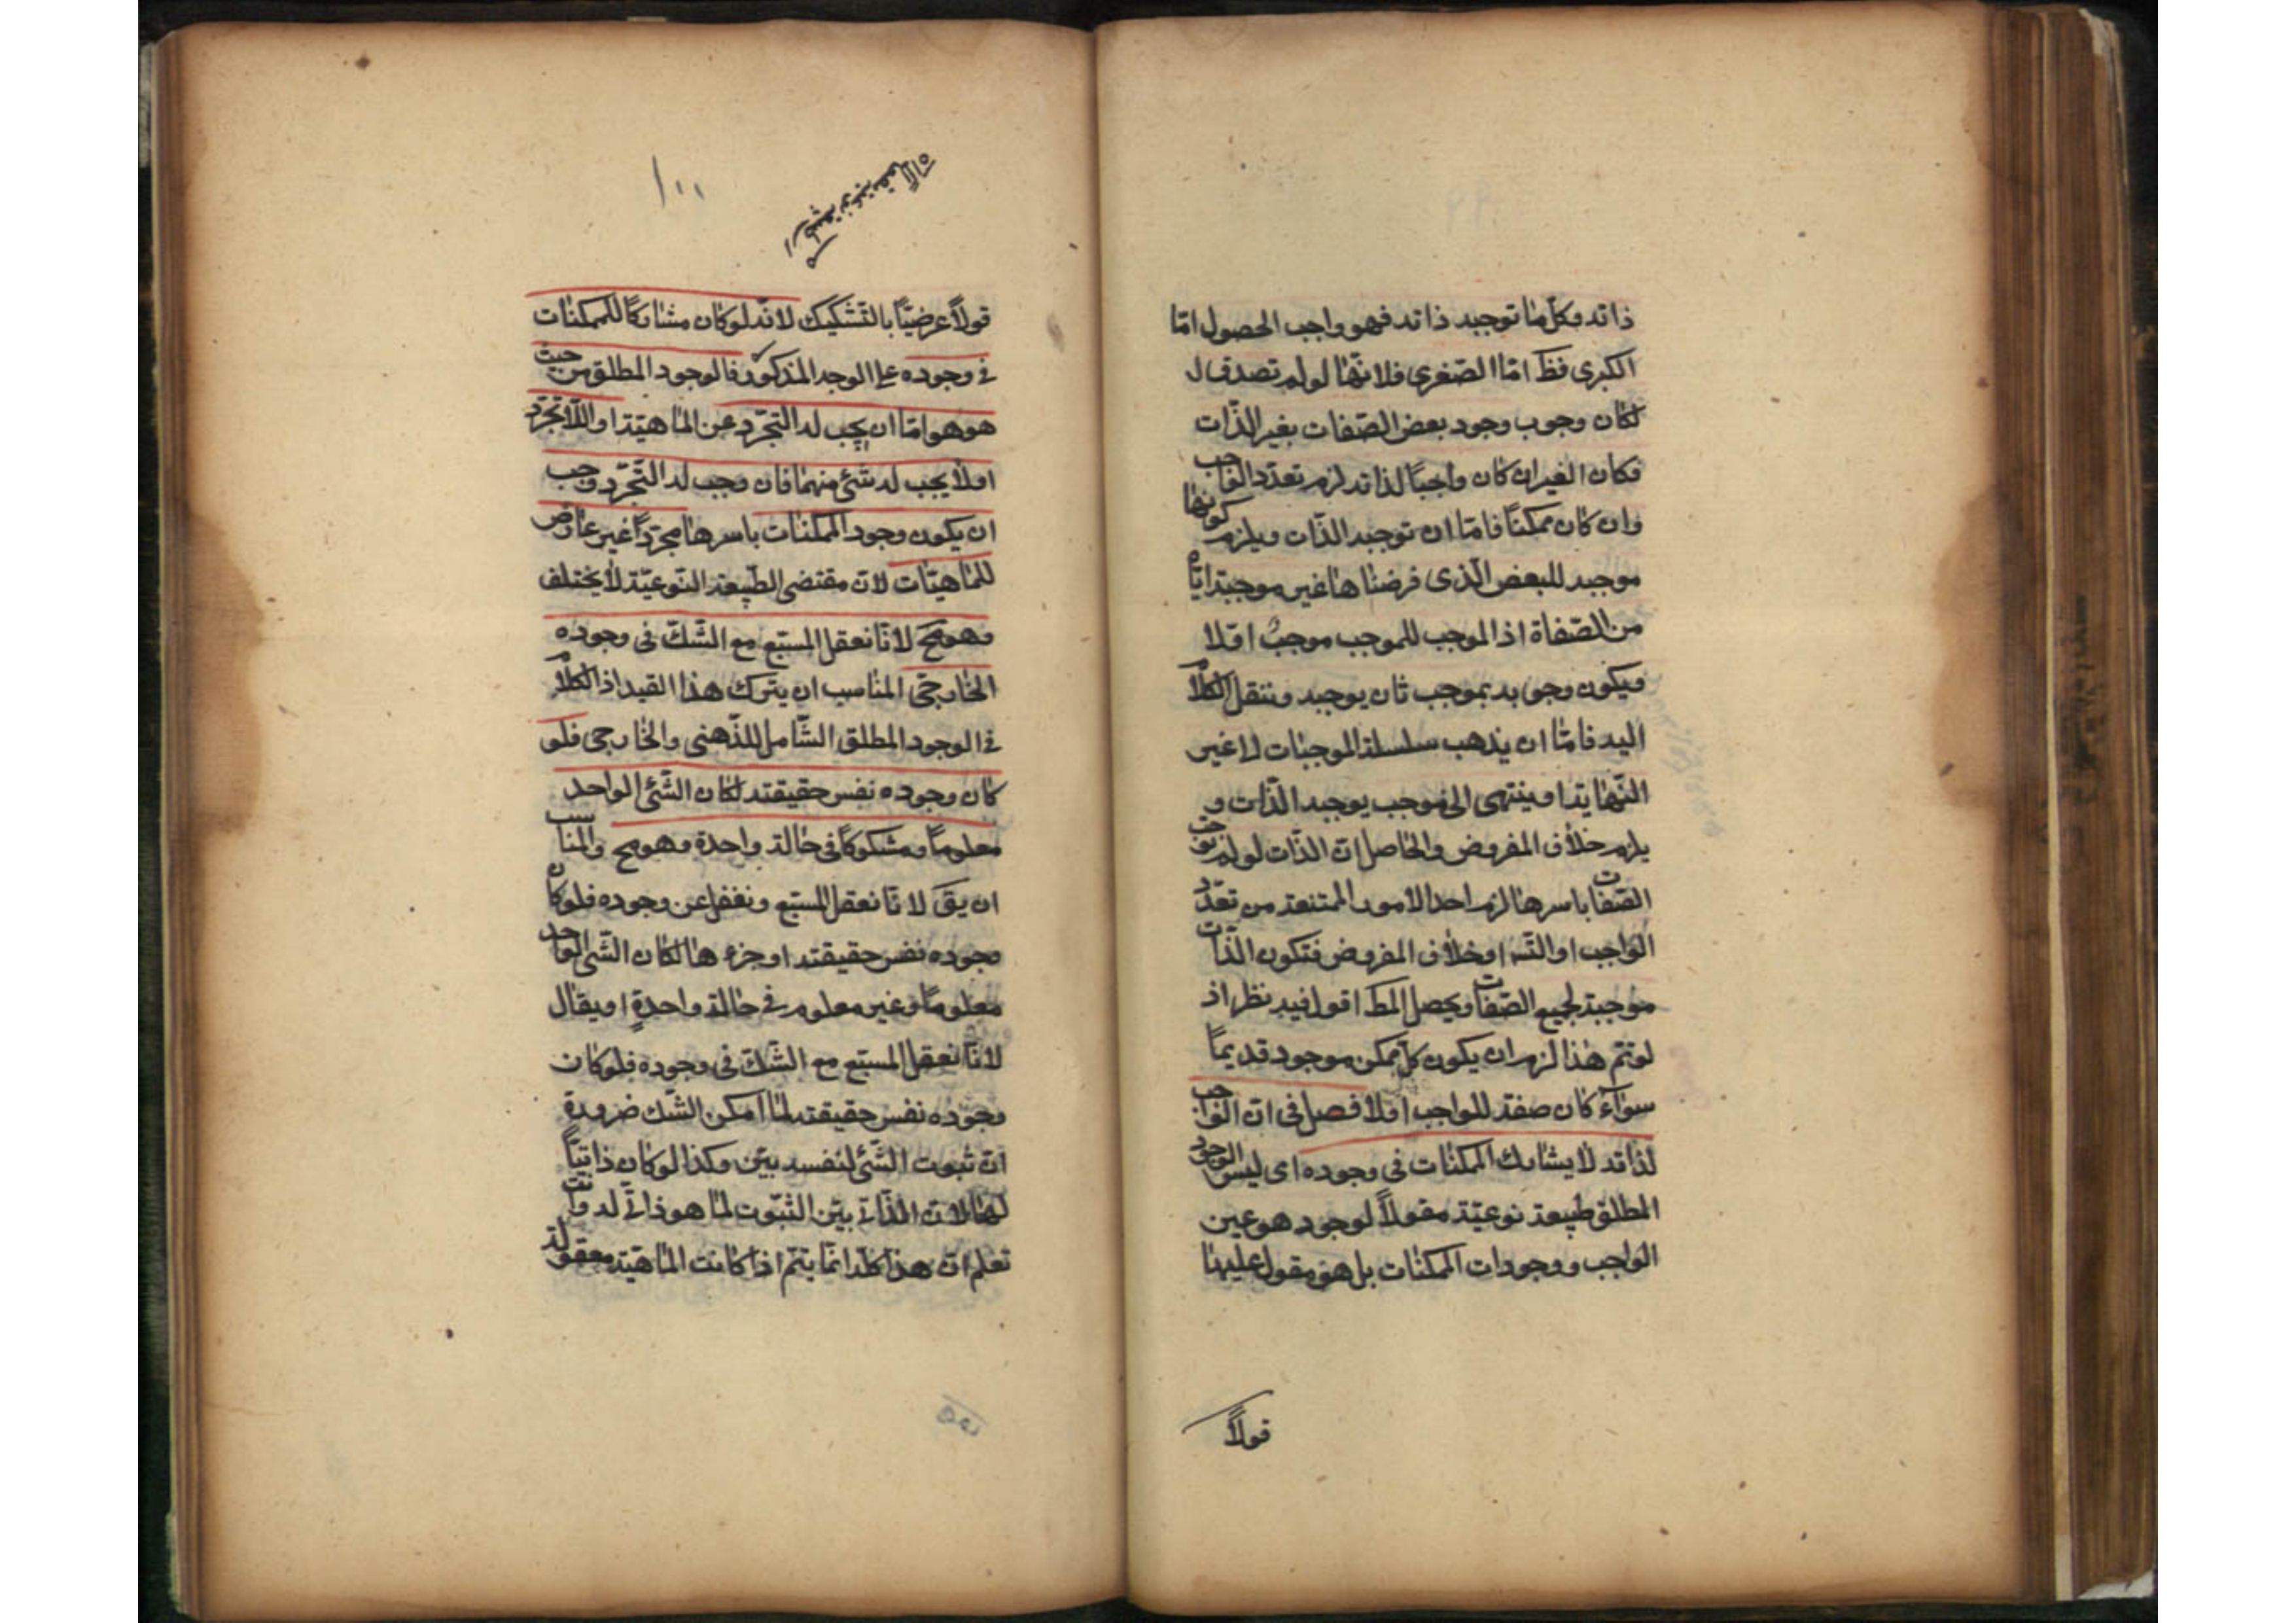 ذاته وكل ما توجبه ذاته فهو واجب الحصول امّا
الكبرى فظ امّا الصّغرى فلانّها لو لم تصدق ل
لكان وجوب وجود بعض الصّفات بغير الذّات
فكان الغير ان كان واجبًا لذاته لزم تعدّد الواجب
وان كان ممكنًا فامّا ان توجبه الذّات ويلزم كونها
موجبه للبعض الّذى فرضناها غير موجبة ايّاه
من الصّفاة اذ الموجب للموجب موجبٌ اولا
ويكون وجوبه بموجب ثان يوجبه وننقل الكلام
اليه فامّا ان يذهب سلسلة الموجبات لا غير
النّهاية او ينتهى الى موجب يوجبه الذّات و
يلزم خلاف المفروض والحاصل انّ الذّات لو لم توجب
الصّفات باسرها لزم احد الامور الممتنعة من تعدّد
الواجب او التّسه او خلاف المفروض فتكون الذّات
موجبة لجميع الصّفات ويحصل المط اقول فيه نظر اذ
لو تمّ هذا لزم ان يكون كلّ ممكن موجود قديمًا
سوآء كان صفة للواجب اولا فصل فى انّ الواجب
لذاته لا يشارك الممكنات فى وجوده اى ليس الوجود
المطلق طبيعة نوعيّة مقولاً لوجود هو عين
الواجب ووجودات الممكنات بل هو مقول عليها
قولاً
١٠٠
قولاً عرضيًّا بالتّشكيك لانّه لو كان مشاركًا للممكنات
فى وجوده على الوجه المذكور فالوجود المطلق من حيث
هو هو امّا ان يجب له التجرّد عن الماهيّة او اللّاتجرّد
او لا يجب له شئ منهما فان وجب له التّجرّد وجب
ان يكون وجود الممكنات باسرها مجرّدًا غير عارض
للماهيّات لانّ مقتضى الطّبيعة النّوعيّة لا يختلف
وهو مح لانّا نعقل المسبّع مع الشّكّ فى وجوده
الخارجىّ المناسب ان يترك هذا القيد اذ الكلام
فى الوجود المطلق الشّامل للذّهنى والخارجى فلو
كان وجوده نفس حقيقته لكان الشّئ الواحد
معلومًا ومشكوكًا فى حالة واحدة وهو مح والمناسب
ان يقَ لانّا نعقل المسبّع ونغفل عن وجوده فلو كان
وجوده نفس حقيقته او جزءها لكان الشّئ الواحد
معلومًا وغير معلوم فى حالة واحدةٍ او يقال
لانّا نعقل المسبّع مع الشّكّ فى وجوده فلو كان
وجوده نفس حقيقته لما امكن الشّك ضرورة
انّ ثبوت الشّئ لنفسه بيّن وكذا لو كان ذاتيًّا
لها لانّ الذّاتى بيّن الثّبوت لما هو ذاتى له وانت
تعلم انّ هذا كلّه انّما يتمّ اذا كانت الماهيّة معقولة